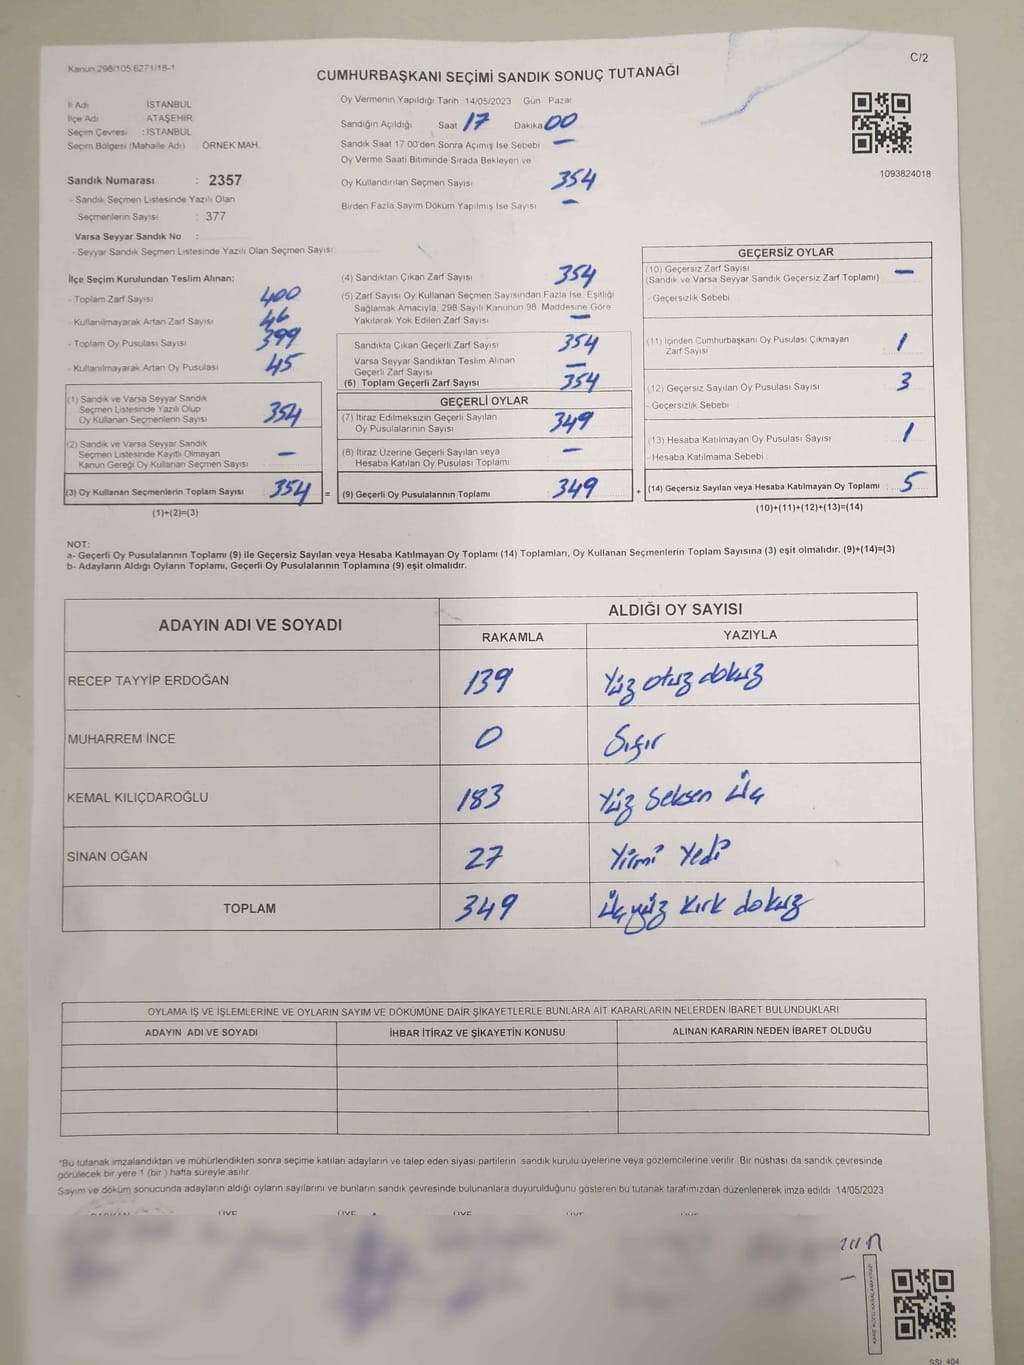 Kanun:298/105,6271/18-1
C/2
CUMHURBAŞKANI SEÇİMİ SANDIK SONUÇ TUTANAĞI
İl Adı : İSTANBUL
İlçe Adı : ATAŞEHİR
Seçim Çevresi : İSTANBUL
Seçim Bölgesi (Mahalle Adı) : ÖRNEK MAH.
Sandık Numarası : 2357
- Sandık Seçmen Listesinde Yazılı Olan
Seçmenlerin Sayısı : 377
Varsa Seyyar Sandık No :
- Seyyar Sandık Seçmen Listesinde Yazılı Olan Seçmen Sayısı:
Oy Vermenin Yapıldığı Tarih 14/05/2023 Gün Pazar
Sandığın Açıldığı Saat 17 Dakika 00
Sandık Saat 17:00'den Sonra Açılmış İse Sebebi —
Oy Verme Saati Bitiminde Sırada Bekleyen ve
Oy Kullandırılan Seçmen Sayısı 354
Birden Fazla Sayım Döküm Yapılmış İse Sayısı —
1093824018
İlçe Seçim Kurulundan Teslim Alınan;
- Toplam Zarf Sayısı 400
- Kullanılmayarak Artan Zarf Sayısı 46
- Toplam Oy Pusulası Sayısı 399
- Kullanılmayarak Artan Oy Pusulası 45
(1) Sandık ve Varsa Seyyar Sandık
Seçmen Listesinde Yazılı Olup
Oy Kullanan Seçmenlerin Sayısı 354
(2) Sandık ve Varsa Seyyar Sandık
Seçmen Listesinde Kayıtlı Olmayan
Kanun Gereği Oy Kullanan Seçmen Sayısı —
(3) Oy Kullanan Seçmenlerin Toplam Sayısı 354 =
(1)+(2)=(3)
(4) Sandıktan Çıkan Zarf Sayısı 354
(5) Zarf Sayısı Oy Kullanan Seçmen Sayısından Fazla İse, Eşitliği
Sağlamak Amacıyla, 298 Sayılı Kanunun 98. Maddesine Göre
Yakılarak Yok Edilen Zarf Sayısı —
Sandıkta Çıkan Geçerli Zarf Sayısı 354
Varsa Seyyar Sandıktan Teslim Alınan
Geçerli Zarf Sayısı —
(6) Toplam Geçerli Zarf Sayısı 354
GEÇERLİ OYLAR
(7) İtiraz Edilmeksizin Geçerli Sayılan
Oy Pusulalarının Sayısı 349
(8) İtiraz Üzerine Geçerli Sayılan veya
Hesaba Katılan Oy Pusulası Toplamı —
(9) Geçerli Oy Pusulalarının Toplamı 349 +
GEÇERSİZ OYLAR
(10) Geçersiz Zarf Sayısı —
(Sandık ve Varsa Seyyar Sandık Geçersiz Zarf Toplamı)
- Geçersizlik Sebebi
(11) İçinden Cumhurbaşkanı Oy Pusulası Çıkmayan
Zarf Sayısı 1
(12) Geçersiz Sayılan Oy Pusulası Sayısı 3
- Geçersizlik Sebebi
(13) Hesaba Katılmayan Oy Pusulası Sayısı 1
- Hesaba Katılmama Sebebi
(14) Geçersiz Sayılan veya Hesaba Katılmayan Oy Toplamı 5
(10)+(11)+(12)+(13)=(14)
NOT:
a- Geçerli Oy Pusulalarının Toplamı (9) ile Geçersiz Sayılan veya Hesaba Katılmayan Oy Toplamı (14) Toplamları, Oy Kullanan Seçmenlerin Toplam Sayısına (3) eşit olmalıdır. (9)+(14)=(3)
b- Adayların Aldığı Oyların Toplamı, Geçerli Oy Pusulalarının Toplamına (9) eşit olmalıdır.
ADAYIN ADI VE SOYADI ALDIĞI OY SAYISI
RAKAMLA YAZIYLA
RECEP TAYYİP ERDOĞAN 139 Yüz otuz dokuz
MUHARREM İNCE 0 Sıfır
KEMAL KILIÇDAROĞLU 183 Yüz Seksen Üç
SİNAN OĞAN 27 Yirmi Yedi
TOPLAM 349 Üçyüz Kırk dokuz
OYLAMA İŞ VE İŞLEMLERİNE VE OYLARIN SAYIM VE DÖKÜMÜNE DAİR ŞİKAYETLERLE BUNLARA AİT KARARLARIN NELERDEN İBARET BULUNDUKLARI
ADAYIN ADI VE SOYADI İHBAR İTİRAZ VE ŞİKAYETİN KONUSU ALINAN KARARIN NEDEN İBARET OLDUĞU
"Bu tutanak imzalandıktan ve mühürlendikten sonra seçime katılan adayların ve talep eden siyasi partilerin sandık kurulu üyelerine veya gözlemcilerine verilir. Bir nüshası da sandık çevresinde
görülecek bir yere 1 (bir) hafta süreyle asılır.
Sayım ve döküm sonucunda adayların aldığı oyların sayılarını ve bunların sandık çevresinde bulunanlara duyurulduğunu gösteren bu tutanak tarafımızdan düzenlenerek imza edildi. 14/05/2023
BAŞKAN ÜYE ÜYE ÜYE ÜYE ÜYE
SSI: 404